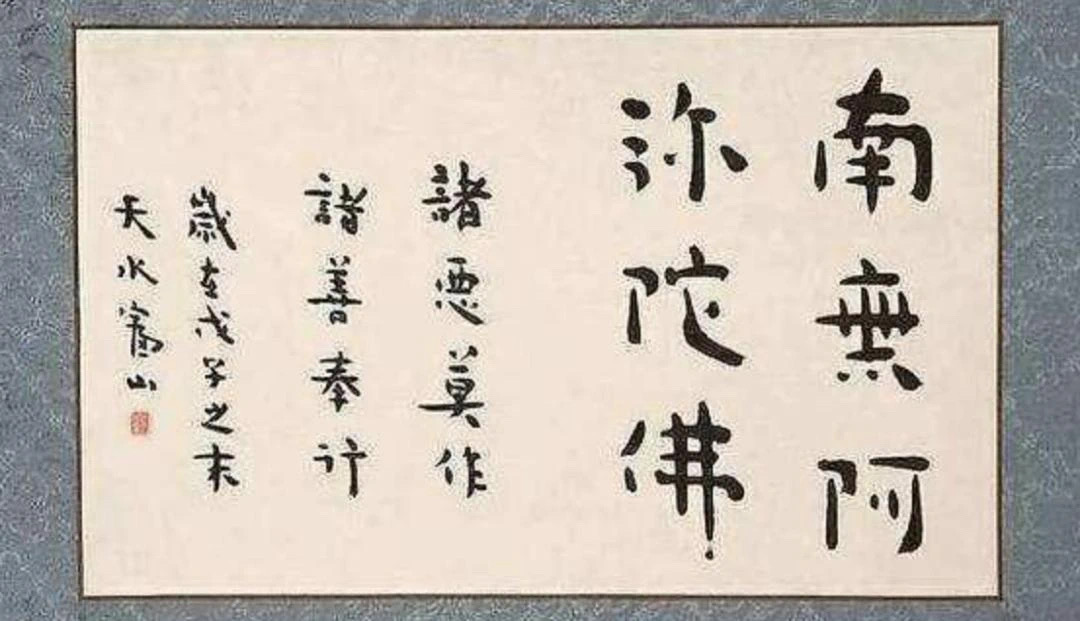 南無阿
弥陀佛
諸惡莫作
諸善奉行
歲在戊子之末
天水寯山